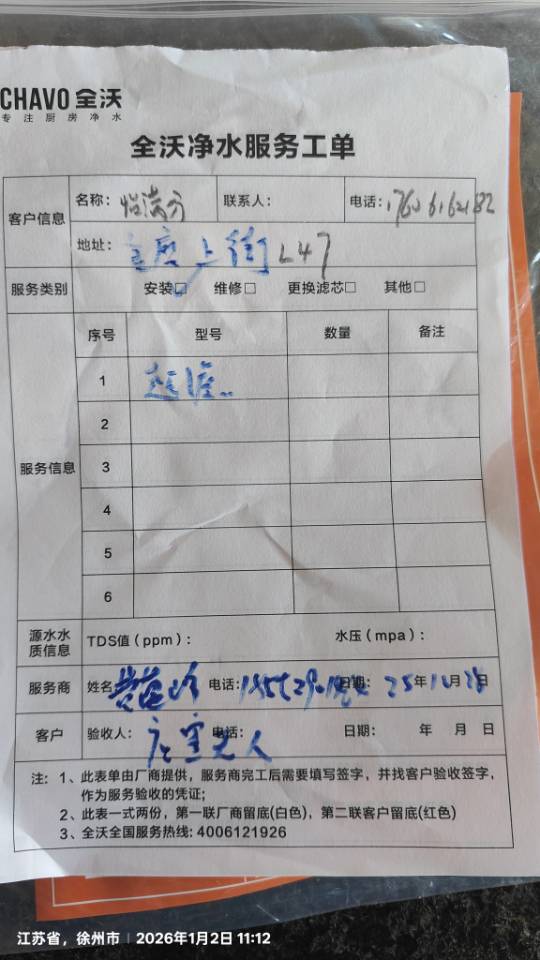 CHAVO 全沃
专注厨房净水
全沃净水服务工单
客户信息
名称: 怡满分 联系人: 电话:
地址: 上街 L47
服务类别 安装□ 维修□ 更换滤芯□ 其他□
服务信息
序号 型号 数量 备注
1
2
3
4
5
6
源水水质信息 TDS值（ppm）: 水压（mpa）:
服务商 姓名 电话: 日期: 25年 月 日
客户 验收人: 电话: 日期: 年 月 日
注: 1、此表单由厂商提供，服务商完工后需要填写签字，并找客户验收签字，
作为服务验收的凭证;
2、此表一式两份，第一联厂商留底(白色)，第二联客户留底(红色)
3、全沃全国服务热线: 4006121926
江苏省，徐州市 2026年1月2日 11:12